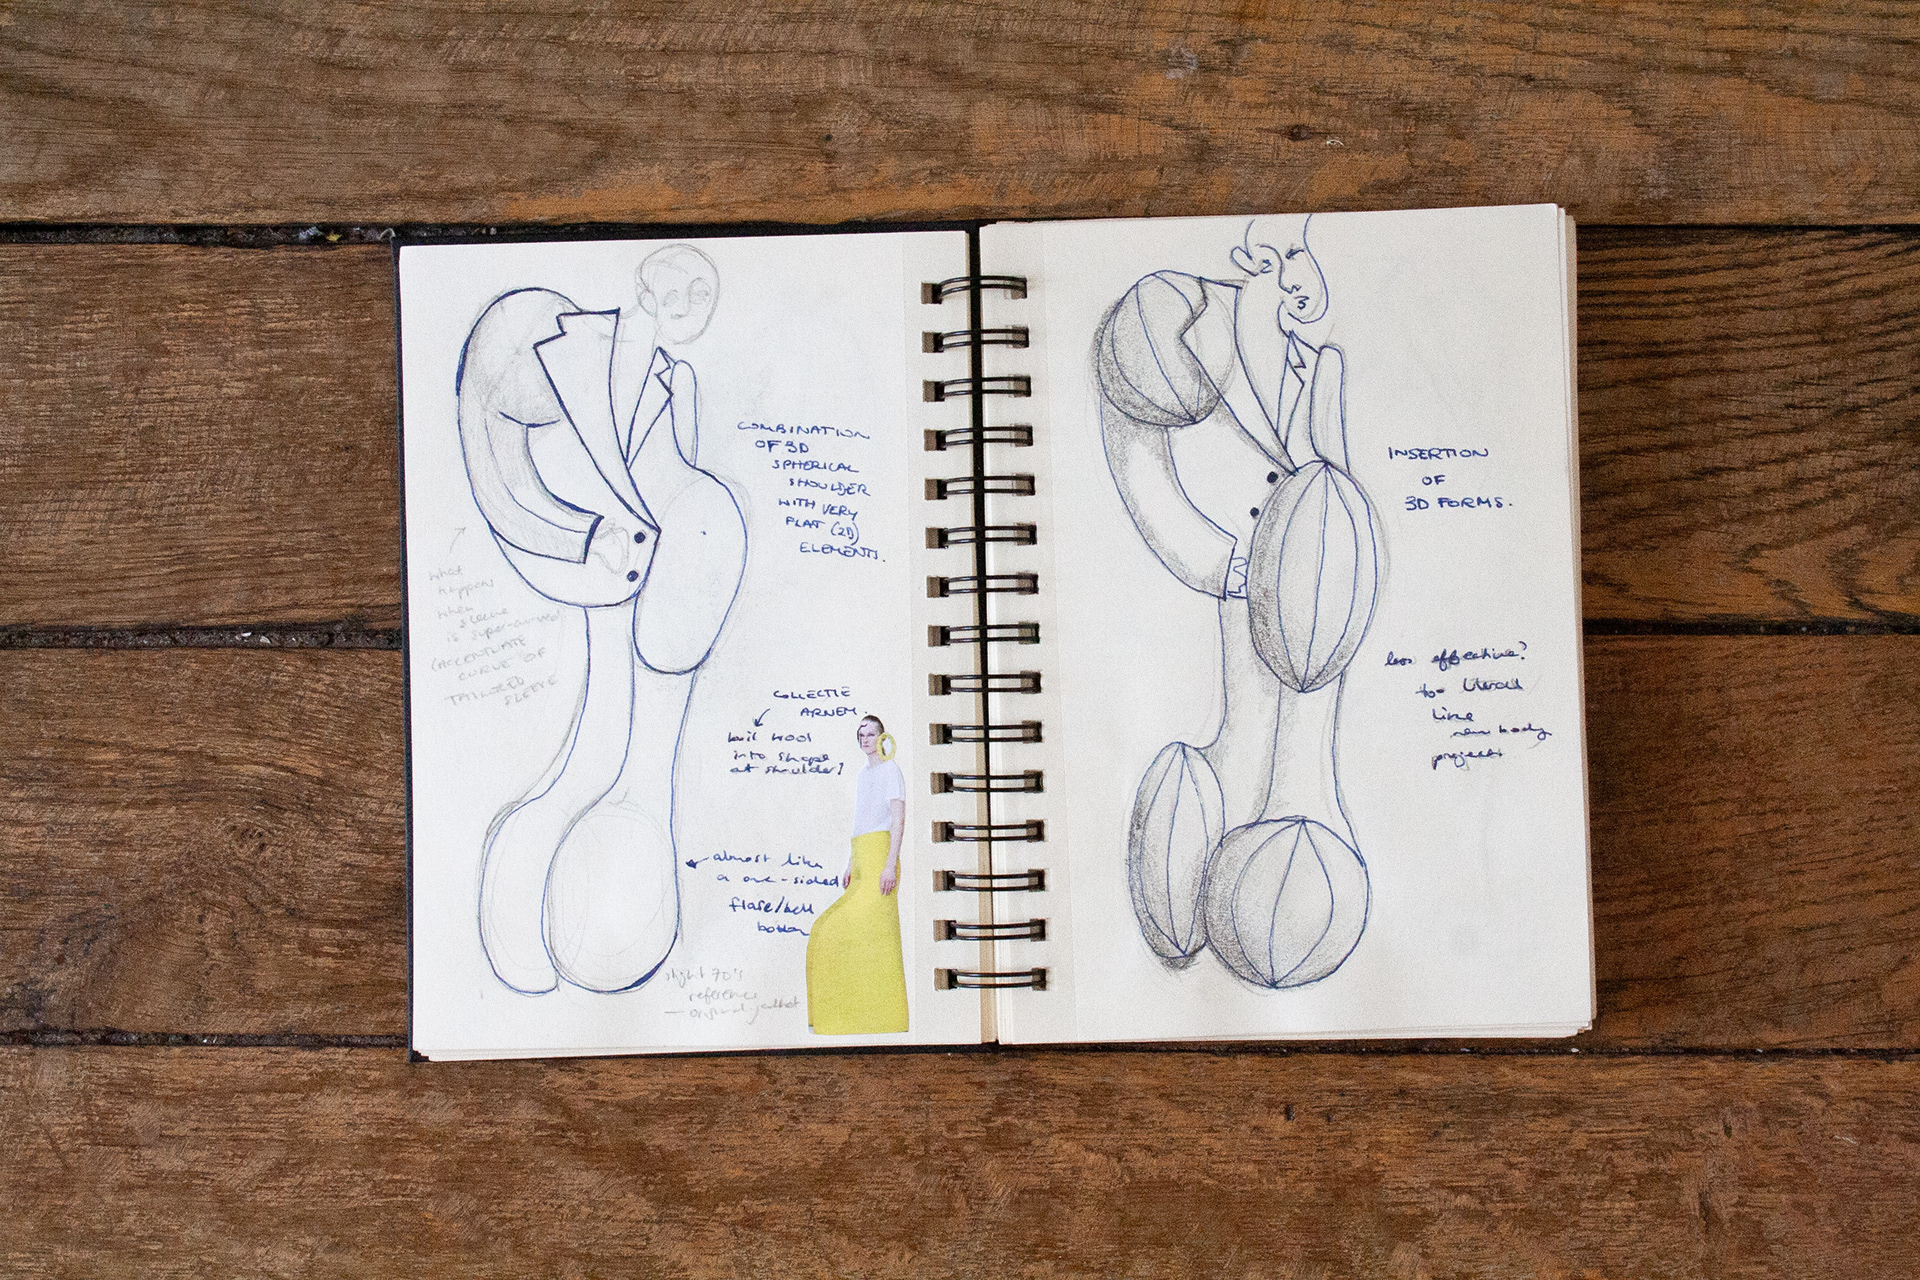 COMBINATION
OF 3D
SPHERICAL
SHOULDER
WITH VERY
FLAT (2D)
ELEMENTS.
what
happens
when
sleeve
is super-curved?
(ACCENTUATE
CURVE OF
TAILORED
SLEEVE
COLLECTIE
ARNEM.
boil wool
into shape
at shoulder?
almost like
a one-sided
flare/bell
bottom
slight 70's
reference
INSERTION
OF
3D FORMS.
less effective?
to literal
like
new body
projects